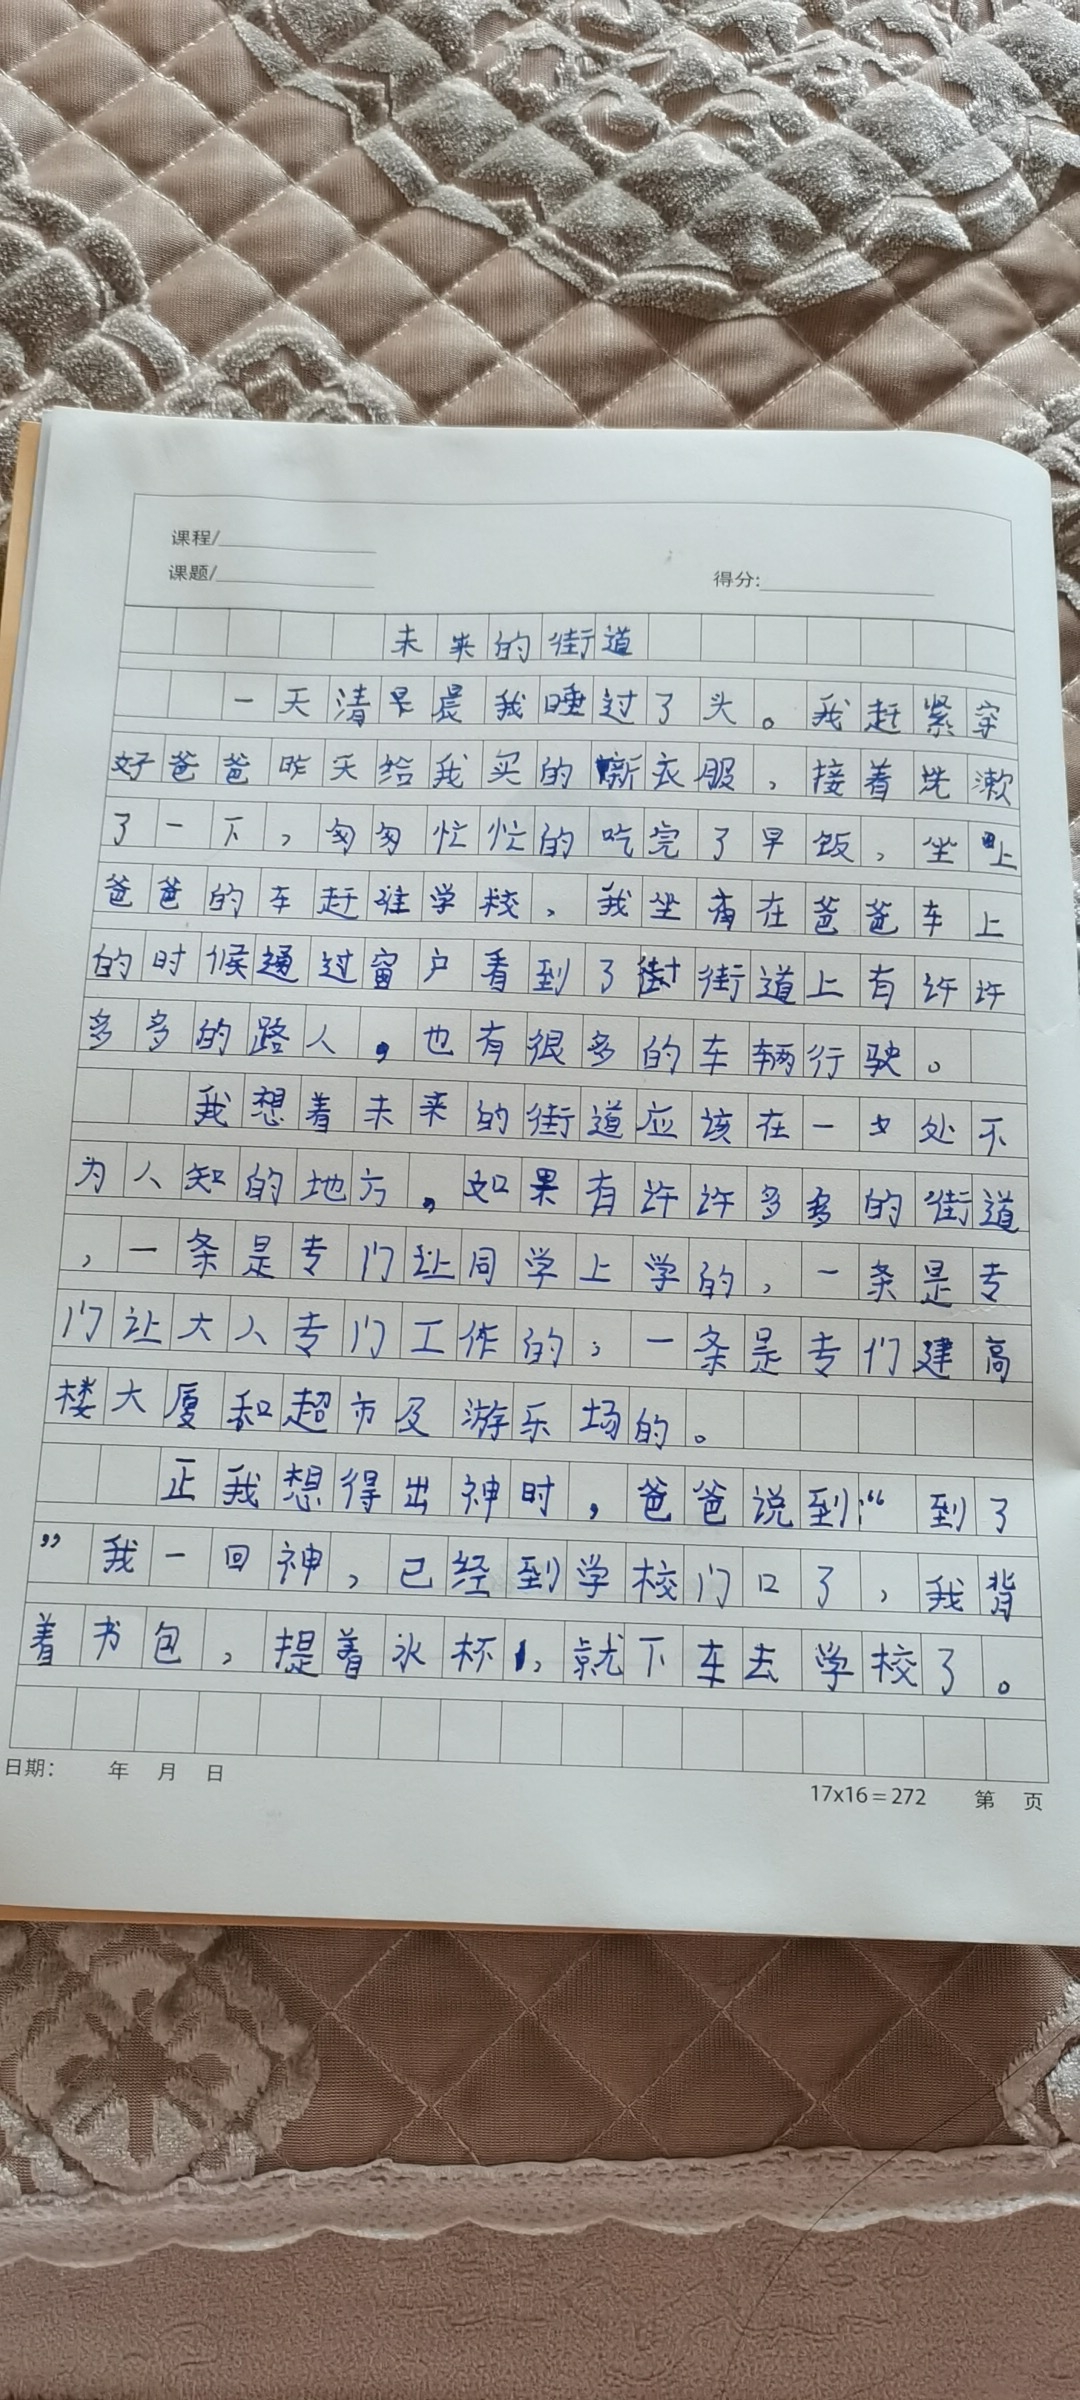 课程/
课题/
得分:
未来的街道
一天清早晨我睡过了头。我赶紧穿
好爸爸昨天给我买的新衣服，接着洗漱
了一下，匆匆忙忙的吃完了早饭，坐上
爸爸的车赶往学校，我坐在爸爸车上
的时候通过窗户看到了街道上有许许
多多的路人，也有很多的车辆行驶。
我想着未来的街道应该在一处不
为人知的地方，如果有许许多多的街道
，一条是专门让同学上学的，一条是专
门让大人专门工作的，一条是专们建高
楼大厦和超市及游乐场的。
正我想得出神时，爸爸说到：“到了
”我一回神，已经到学校门口了，我背
着书包，提着水杯，就下车去学校了。
日期： 年 月 日
17x16=272 第 页